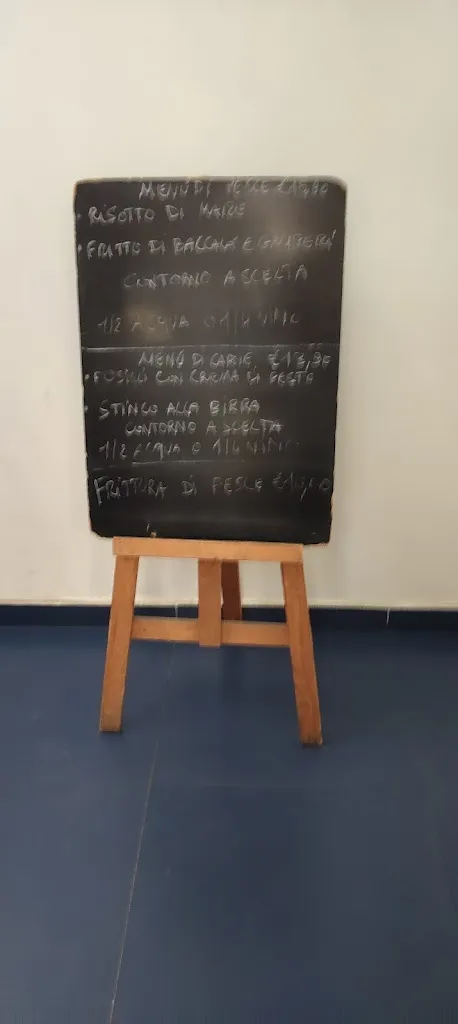 MENÙ DI PESCE
• RISOTTO DI MARE
• FRITTO DI BACCALÀ E
CONTORNO A SCELTA
1/2 ACQUA O 1/4 VINO
MENÙ DI CARNE €13,90
• FUSILLI CON CREMA DI PESTO
• STINCO ALLA BIRRA
CONTORNO A SCELTA
1/2 ACQUA O 1/4 VINO
FRITTURA DI PESCE